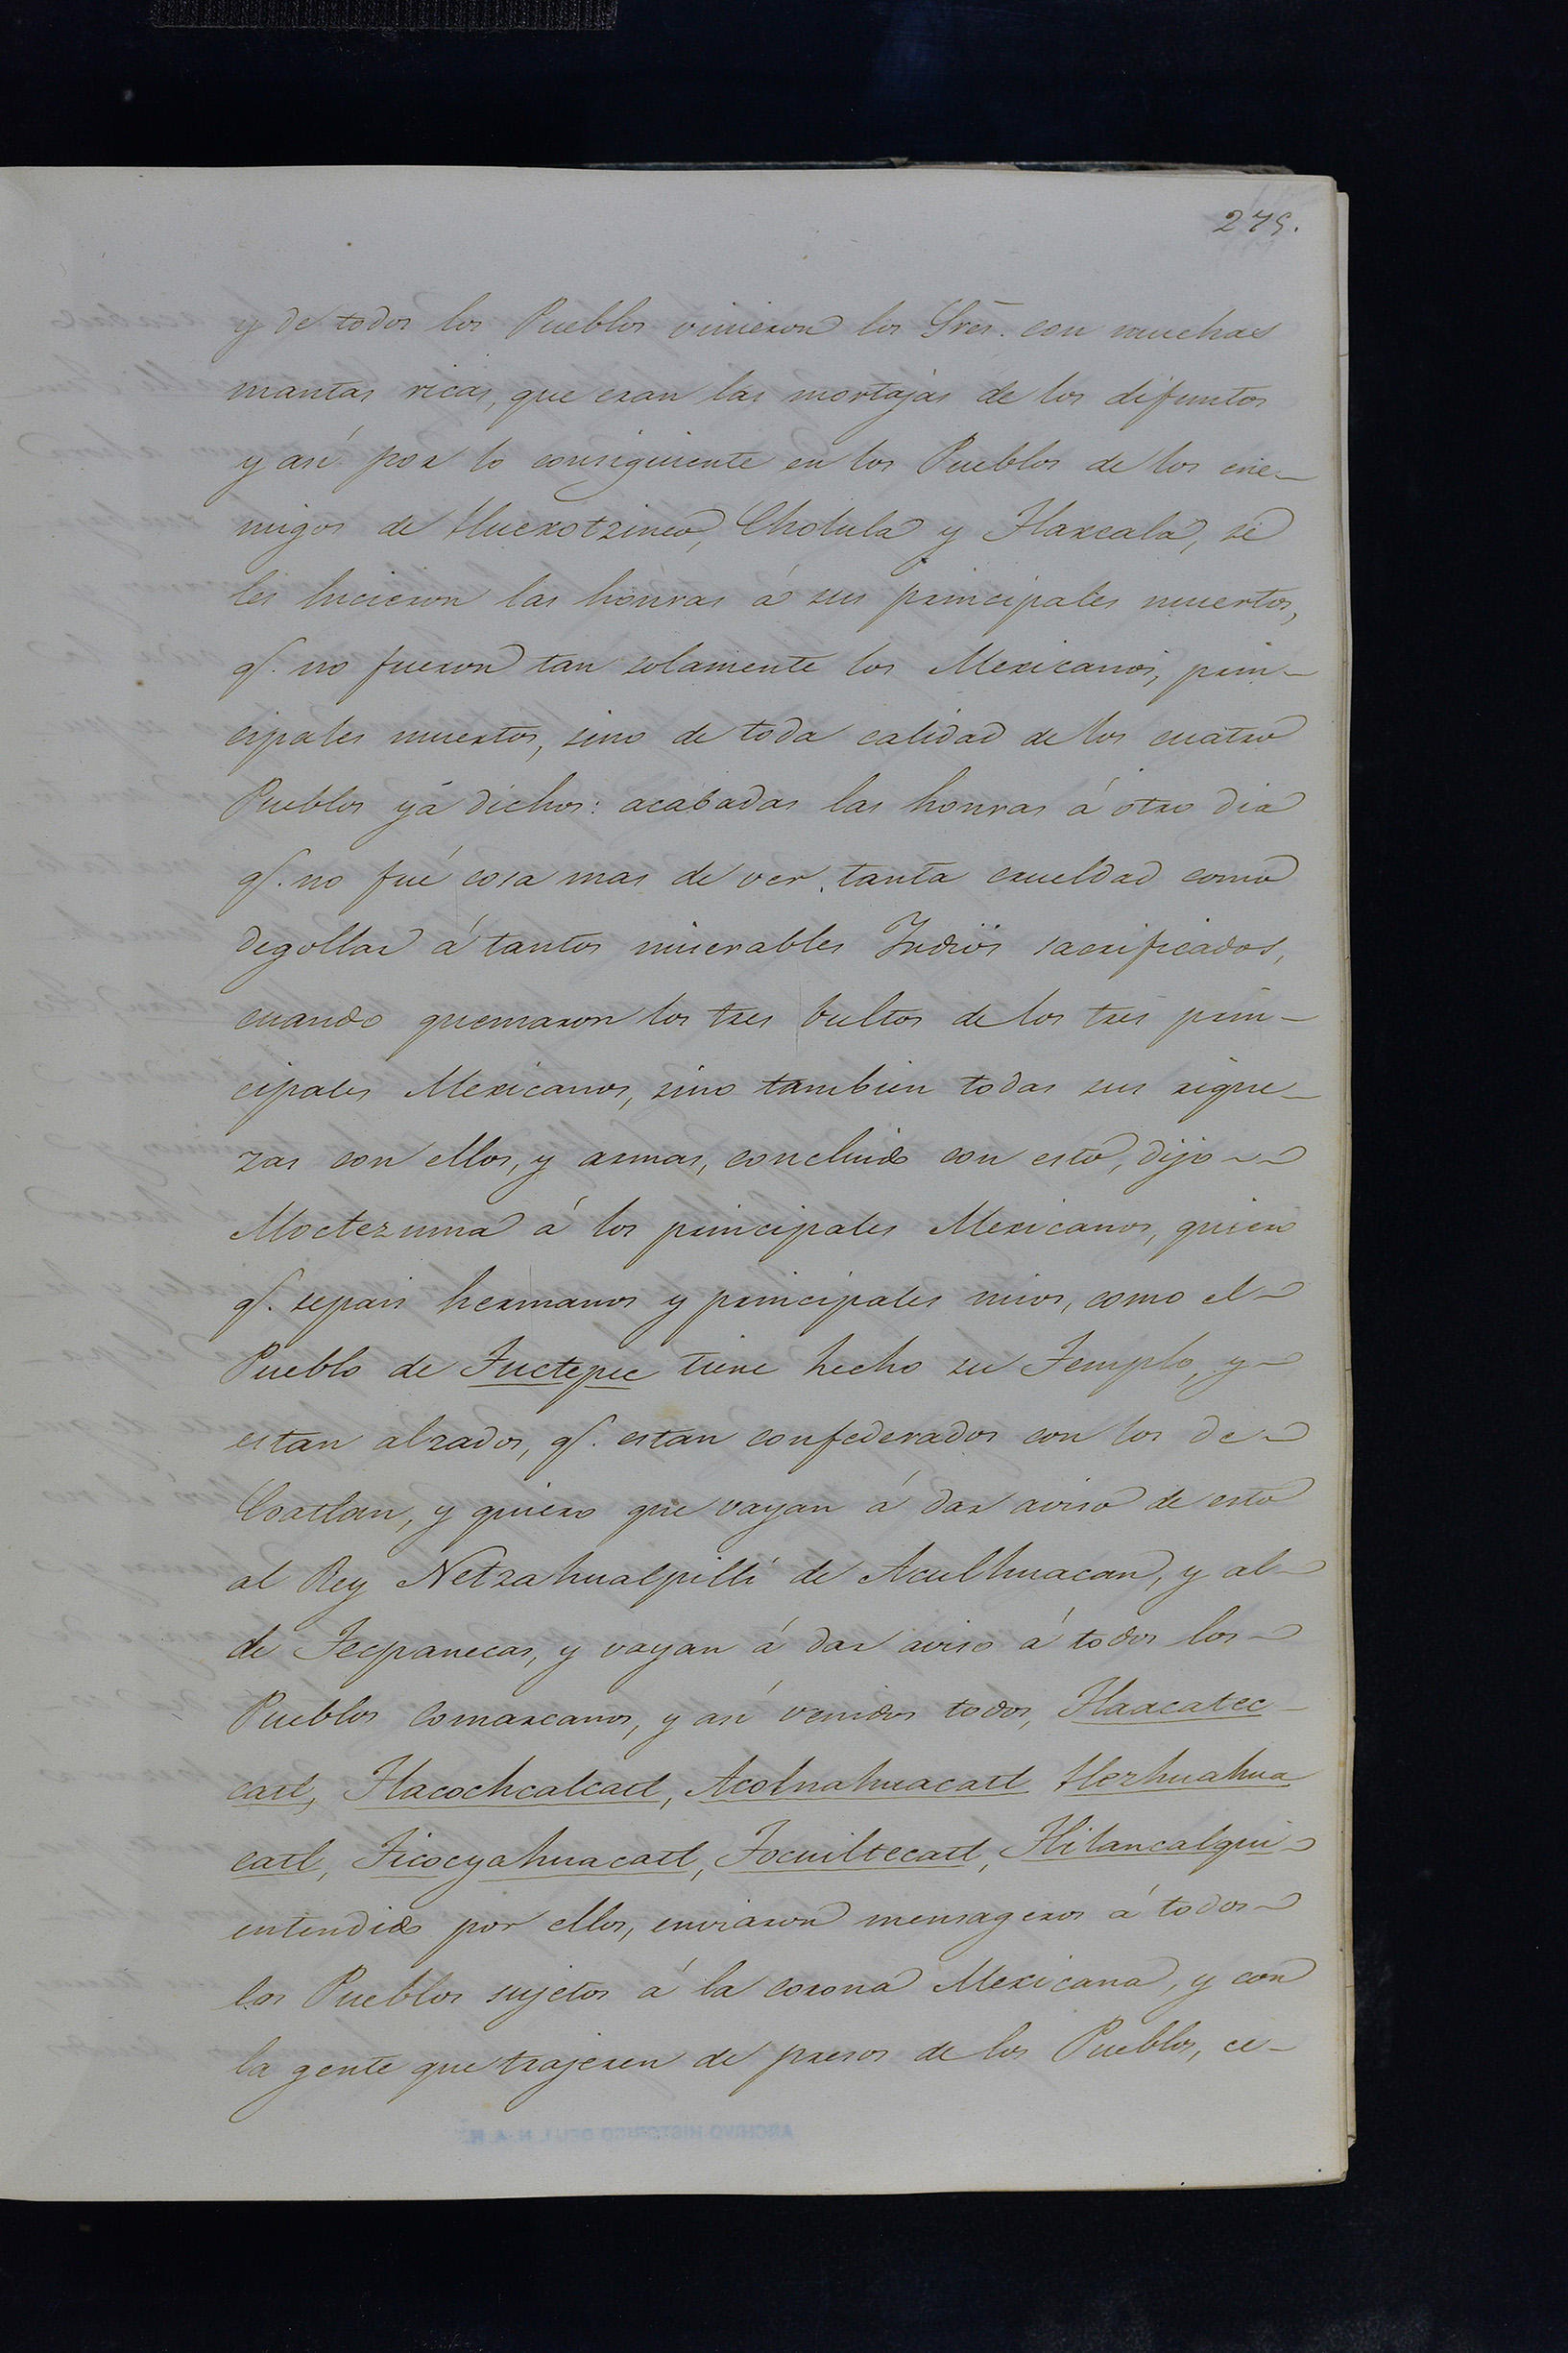 275.
y de todos los Pueblos vinieron los Sres. con muchas
mantas ricas, que eran las mortajas de los difuntos
y así por lo consiguiente en los Pueblos de los ene-
migos de Huexotzinco, Cholula y Tlaxcala, se
les hicieron las honras á sus principales muertos,
q.e no fueron tan solamente los Mexicanos, prin-
cipales muertos, sino de toda calidad de los cuatro
Pueblos yá dichos: acabadas las honras á otro dia
q.e no fué cosa mas de ver, tanta crueldad como
degollar á tantos miserables Indios sacrificados,
cuando quemaron los tres bultos de los tres prin-
cipales Mexicanos, sino tambien todas sus rique-
zas con ellos, y armas, concluido con esto, dijo
Moctezuma á los principales Mexicanos, quiero
q.e sepais hermanos y principales mios, como el
Pueblo de Tuctepec tiene hecho su Templo, y
estan alzados, q.e estan confederados con los de
Coatlan, y quiero que vayan á dar aviso de esto
al Rey Netzahualpilli de Aculhuacan, y al
de Tecpanecas, y vayan á dar aviso á todos los
Pueblos Comarcanos, y así venidos todos, Tlaacatec-
catl, Tlacochcalcatl, Acolnahuacatl Hezhuahua
catl, Ticocyahuacatl, Tocuiltecatl, Tlilancalqui
entendido por ellos, enviaron mensageros á todos
los Pueblos sujetos á la corona Mexicana, y con
la gente que trajeren de presos de los Pueblos, ce-
ARCHIVO HISTORICO DEL I. N. A. H.